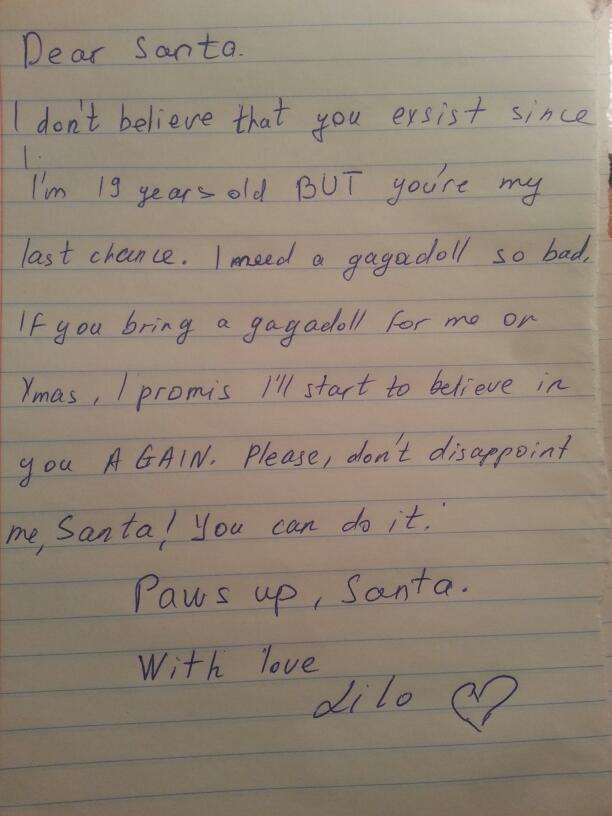 Dear Santa.
I don't believe that you exsist since
I.
I'm 19 years old BUT you're my
last chance. I need a gagadoll so bad.
If you bring a gagadoll for me on
Xmas, I promis I'll start to believe in
you AGAIN. Please, don't disappoint
me, Santa! You can do it.
Paws up, Santa.
With love
Lilo